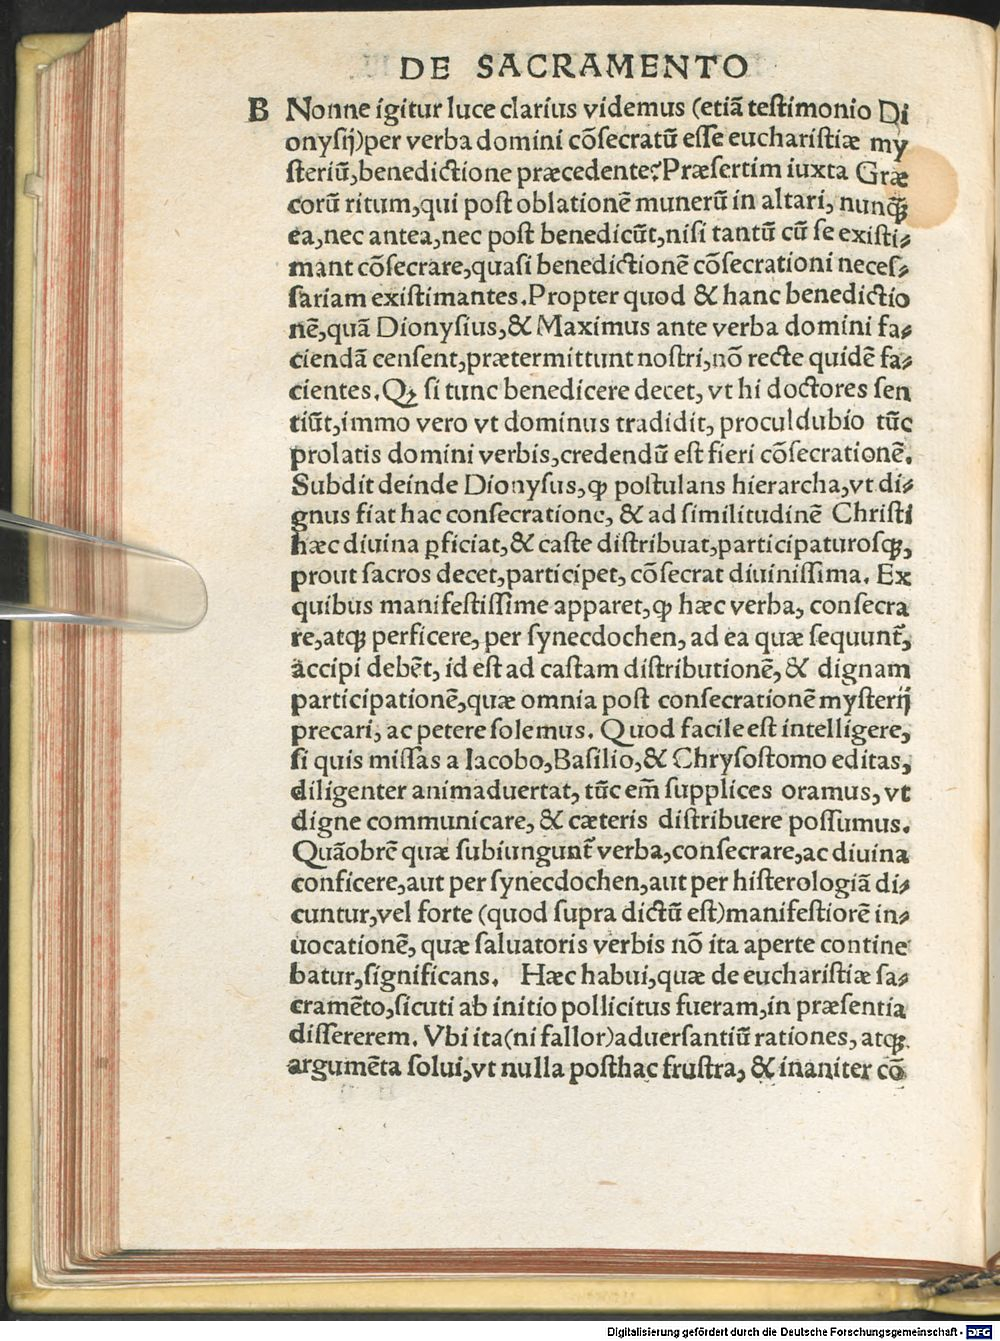 DE SACRAMENTO
B Nonne igitur luce clarius videmus (etiã testimonio Di
onysij) per verba domini cõsecratũ esse eucharistiæ my
steriũ, benedictione præcedente? Præsertim iuxta Græ
corũ ritum, qui post oblationẽ munerũ in altari, nunqꝫ̃
ea, nec antea, nec post benedicũt, nisi tantũ cũ se existi⸗
mant cõsecrare, quasi benedictionẽ cõsecrationi neces⸗
sariam existimantes. Propter quod & hanc benedictio
nẽ, quã Dionysius, & Maximus ante verba domini fa⸗
ciendã censent, prætermittunt nostri, nõ recte quidẽ fa⸗
cientes. Qꝫ si tunc benedicere decet, vt hi doctores sen
tiũt, immo vero vt dominus tradidit, proculdubio tũc
prolatis domini verbis, credendũ est fieri cõsecrationẽ.
Subdit deinde Dionysus, ꝙ postulans hierarcha, vt di⸗
gnus fiat hac consecratione, & ad similitudinẽ Christi
hæc diuina ꝑficiat, & caste distribuat, participaturosqꝫ,
prout sacros decet, participet, cõsecrat diuinissima. Ex
quibus manifestissime apparet, ꝙ hæc verba, consecra
re, atqꝫ perficere, per synecdochen, ad ea quæ sequunt᷑,
accipi debẽt, id est ad castam distributionẽ, & dignam
participationẽ, quæ omnia post consecrationẽ mysterij
precari, ac petere solemus. Quod facile est intelligere,
si quis missas a Iacobo, Basilio, & Chrysostomo editas,
diligenter animaduertat, tũc em̃ supplices oramus, vt
digne communicare, & cæteris distribuere possumus.
Quãobrẽ quæ subiungunt᷑ verba, consecrare, ac diuina
conficere, aut per synecdochen, aut per histerologiã di⸗
cuntur, vel forte (quod supra dictũ est) manifestiorẽ in⸗
uocationẽ, quæ saluatoris verbis nõ ita aperte contine
batur, significans. Hæc habui, quæ de eucharistiæ sa⸗
cramẽto, sicuti ab initio pollicitus fueram, in præsentia
dissererem. Vbi ita (ni fallor) aduersantiũ rationes, atqꝫ
argumẽta solui, vt nulla posthac frustra, & inaniter cõ
Digitalisierung gefördert durch die Deutsche Forschungsgemeinschaft - DFG